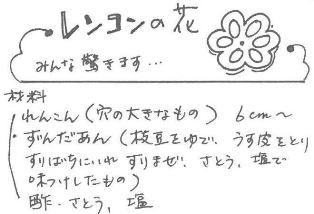 レンコンの花
みんな驚きます…
材料
・れんこん(穴の大きなもの) 6cm〜
・ずんだあん(枝豆をゆで、うす皮をとり
すりばちにいれ すりまぜ、さとう、塩で
味つけしたもの)
酢・さとう、塩